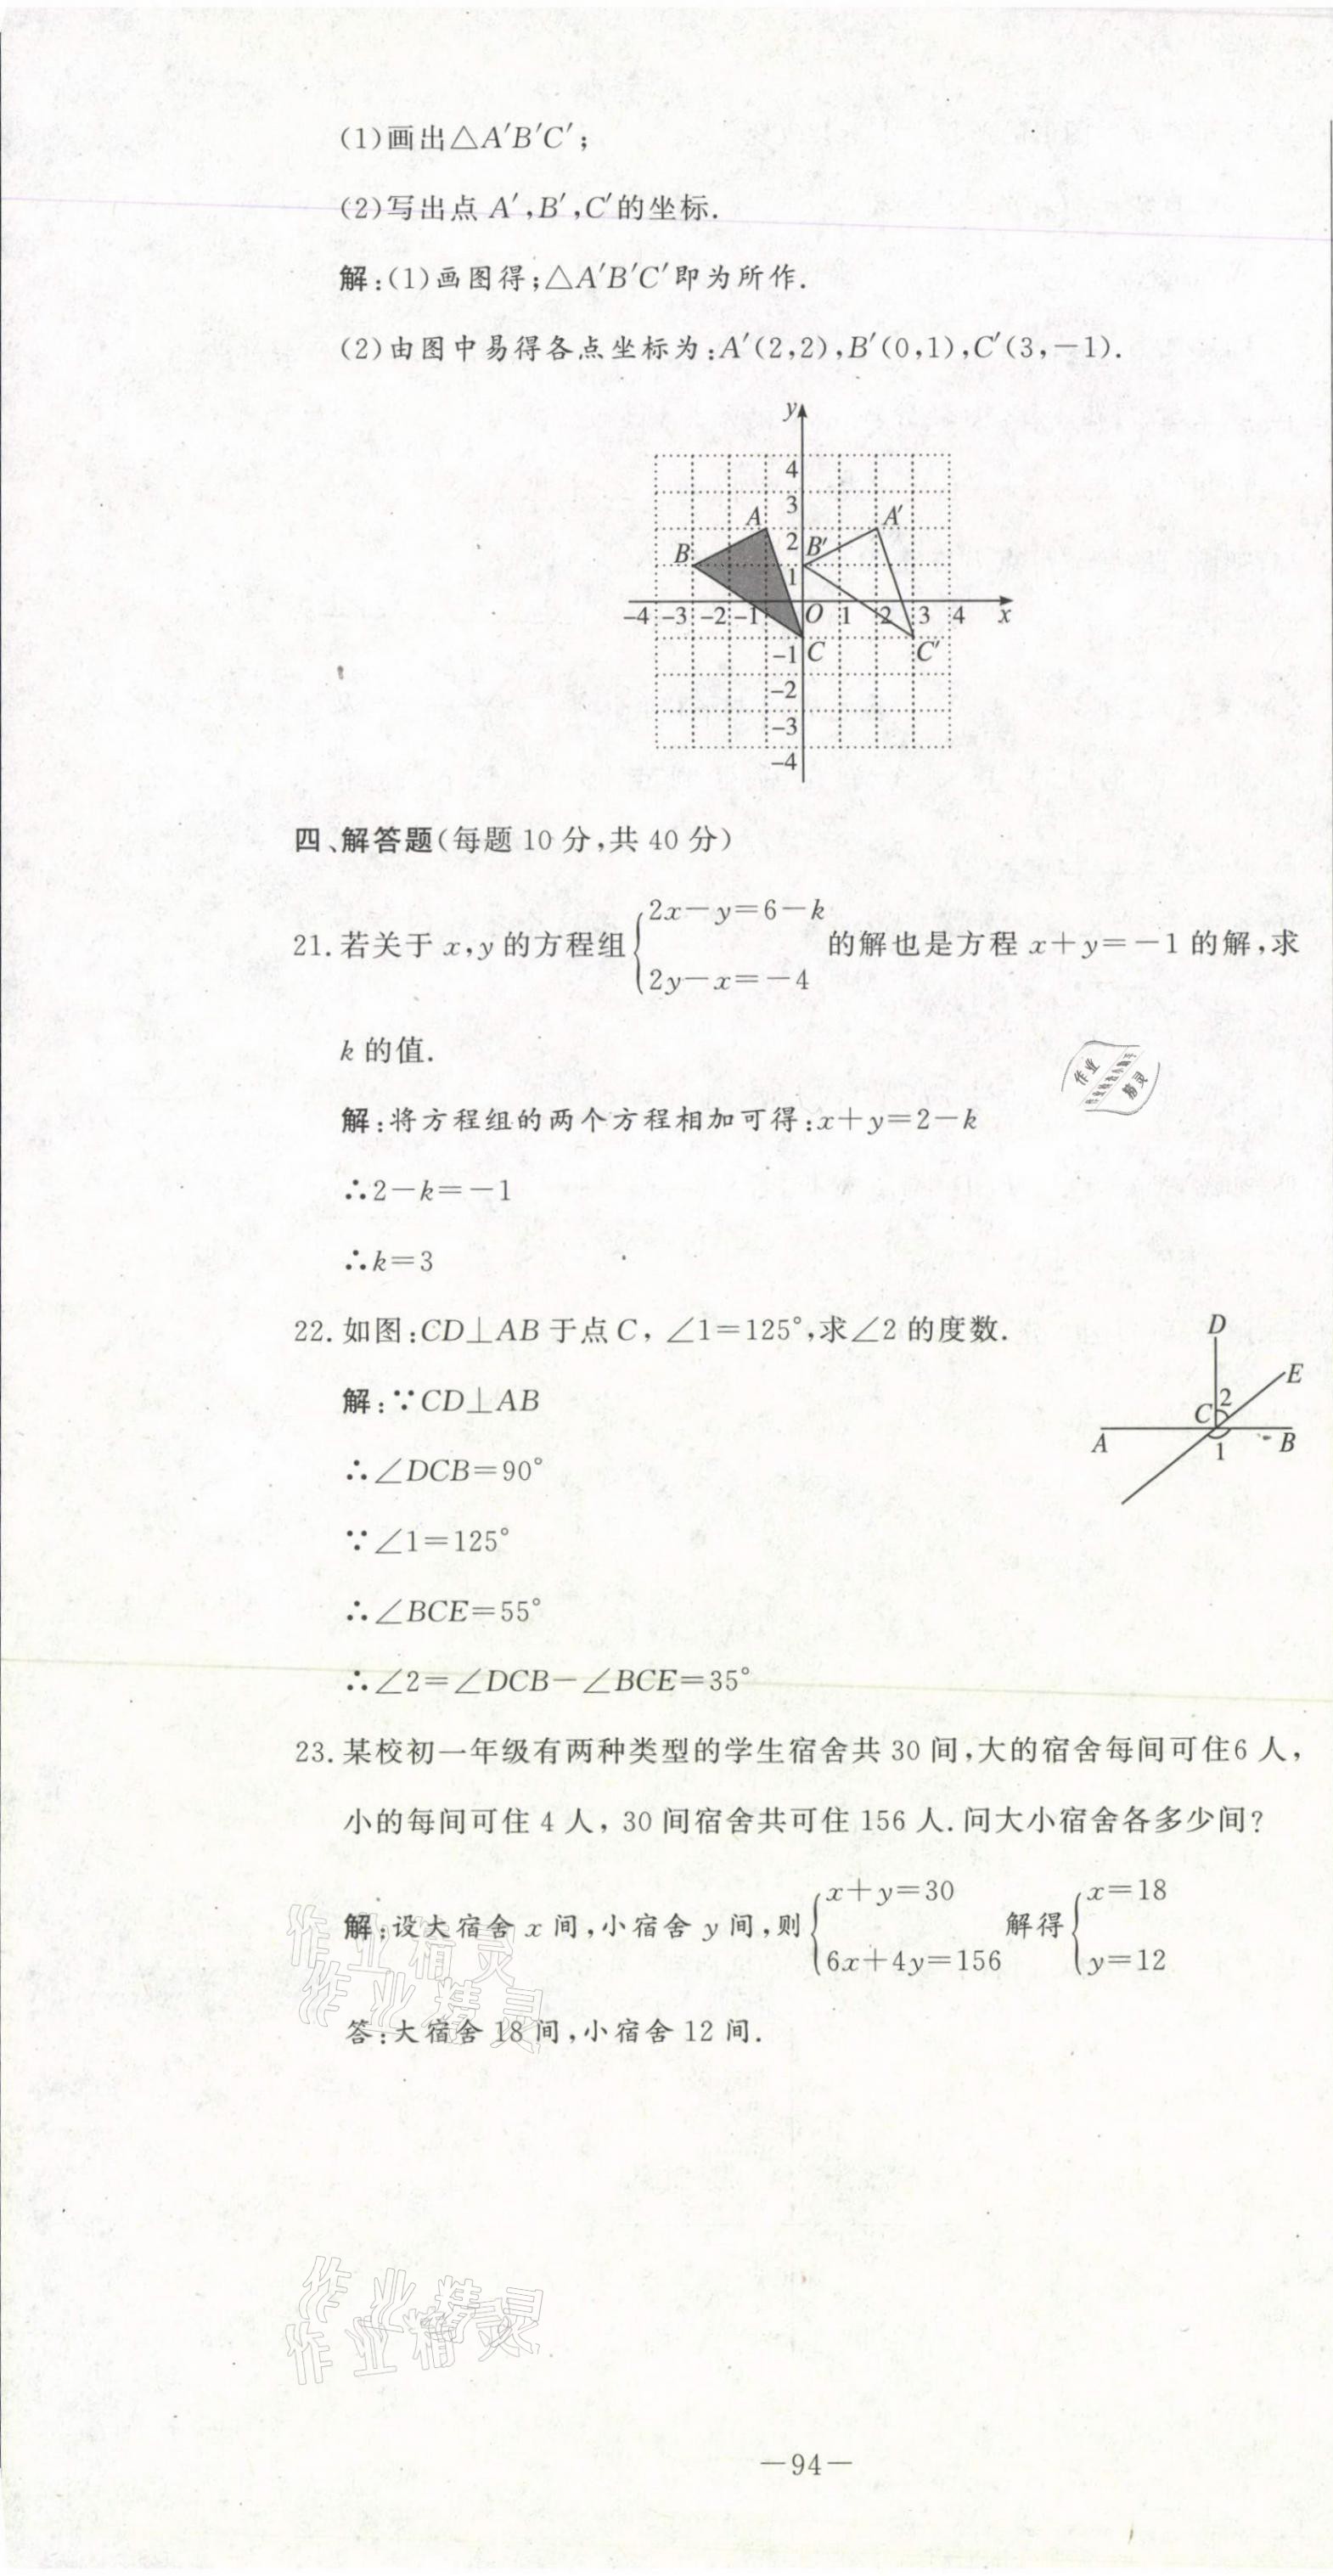 (1)画出△A′B′C′;
(2)写出点 A′,B′,C′的坐标.
解:(1)画图得;△A′B′C′即为所作.
(2)由图中易得各点坐标为:A′(2,2),B′(0,1),C′(3,-1).
y
4
3
A
A′
2
B′
B
1
-4 -3 -2 -1 O 1 2 3 4 x
-1 C
C′
-2
-3
-4
四、解答题(每题 10 分,共 40 分)
21. 若关于 x,y 的方程组{2x-y=6-k
2y-x=-4 的解也是方程 x+y=-1 的解,求
k 的值.
解:将方程组的两个方程相加可得:x+y=2-k
∴2-k=-1
∴k=3
22. 如图:CD⊥AB 于点 C, ∠1=125°,求∠2 的度数.
D
E
2
C
A
1
B
解:∵CD⊥AB
∴∠DCB=90°
∵∠1=125°
∴∠BCE=55°
∴∠2=∠DCB-∠BCE=35°
23. 某校初一年级有两种类型的学生宿舍共 30 间,大的宿舍每间可住6 人,
小的每间可住 4 人, 30 间宿舍共可住 156 人. 问大小宿舍各多少间?
解:设大宿舍 x 间,小宿舍 y 间,则{x+y=30
6x+4y=156 解得{x=18
y=12
答:大宿舍 18 间,小宿舍 12 间.
作业精灵
作业精灵
作业精灵
作业精灵
作业
精灵
—94—